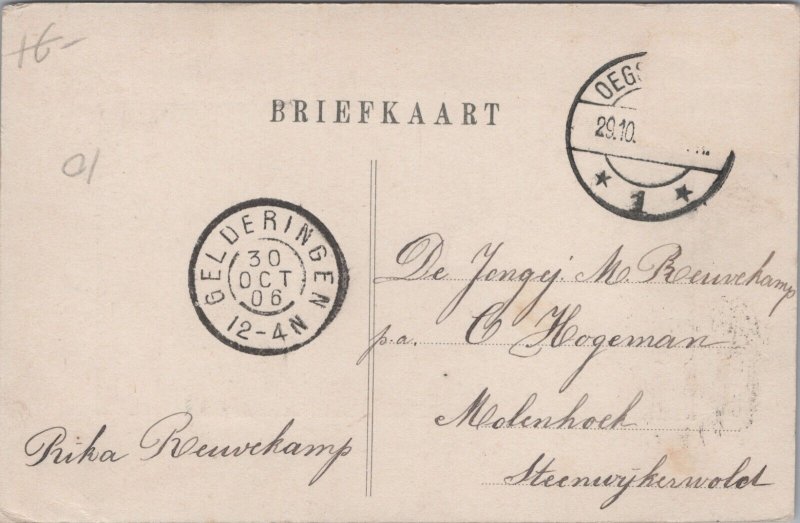 BRIEFKAART
OEGS
29.10.
1
GELDERINGEN
30
OCT
06
12-4N
De Jongej. M. Reuvekamp
p.a. C Hogeman
Molenhoek
Steenwijkerwold
Rika Reuvekamp